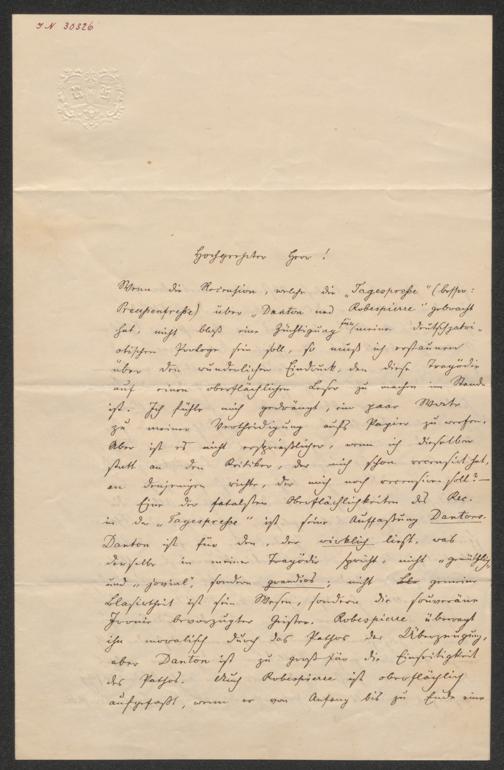 I N 30526
Hochgeehrter Herr!
Wenn die Recension, welche die „Tagespresse" (besser:
Preußenfresse) über „Danton und Robespierre" gebracht
hat, nicht bloß eine Züchtigung für meine deutschpatri-
otischen Prologe sein soll, so muß ich erstaunen
über den wunderlichen Eindruck, den diese Tragödie
auf einen oberflächlichen Leser zu machen im Stande
ist. Ich fühle mich gedrängt, ein paar Worte
zu meiner Vertheidigung aufs Papier zu werfen.
Aber ist es nicht ersprießlicher, wenn ich dieselben
statt an den Kritiker, der mich schon recensirt hat,
an denjenigen richte, der mich noch recensiren soll? —
Eine der fatalsten Oberflächlichkeiten des Rec.
in der „Tagespresse" ist seine Auffassung Dantons.
Danton ist für den, der wirklich liest, was
derselbe in meiner Tragödie spricht, nicht „gemüthlich"
und „jovial", sondern grandios; nicht gemeine
Blasirtheit ist sein Wesen, sondern die souveräne
Ironie bevorzugter Geister. Robespierre überragt
ihn moralisch durch das Pathos der Überzeugung,
aber Danton ist zu groß für die Einseitigkeit
des Pathos. Auch Robespierre ist oberflächlich
aufgefaßt, wenn er von Anfang bis zu Ende eine